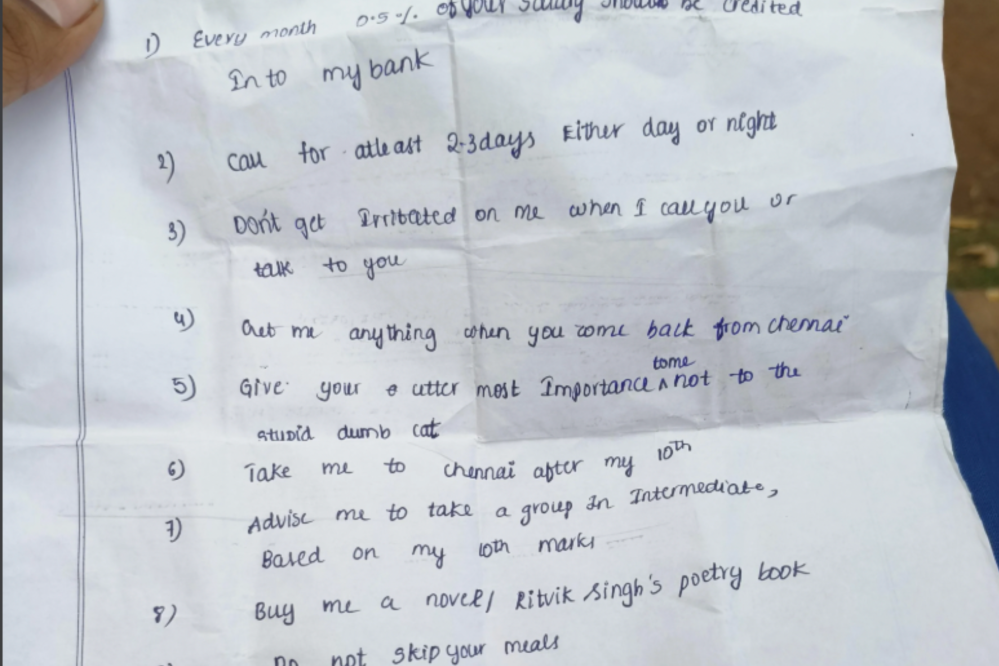 1) Every month 0.5%. of your salary should be credited
Into my bank
2) call for atleast 2-3days Either day or night
3) Don't get Irritated on me when I call you or
talk to you
4) Get me anything when you come back from chennai
5) Give your utter most Importance to me ^ not to the
stupid dumb cat
6) Take me to chennai after my 10th
7) Advise me to take a group In Intermediate,
Based on my 10th marks
8) Buy me a novel/ Ritvik Singh's poetry book
Do not skip your meals